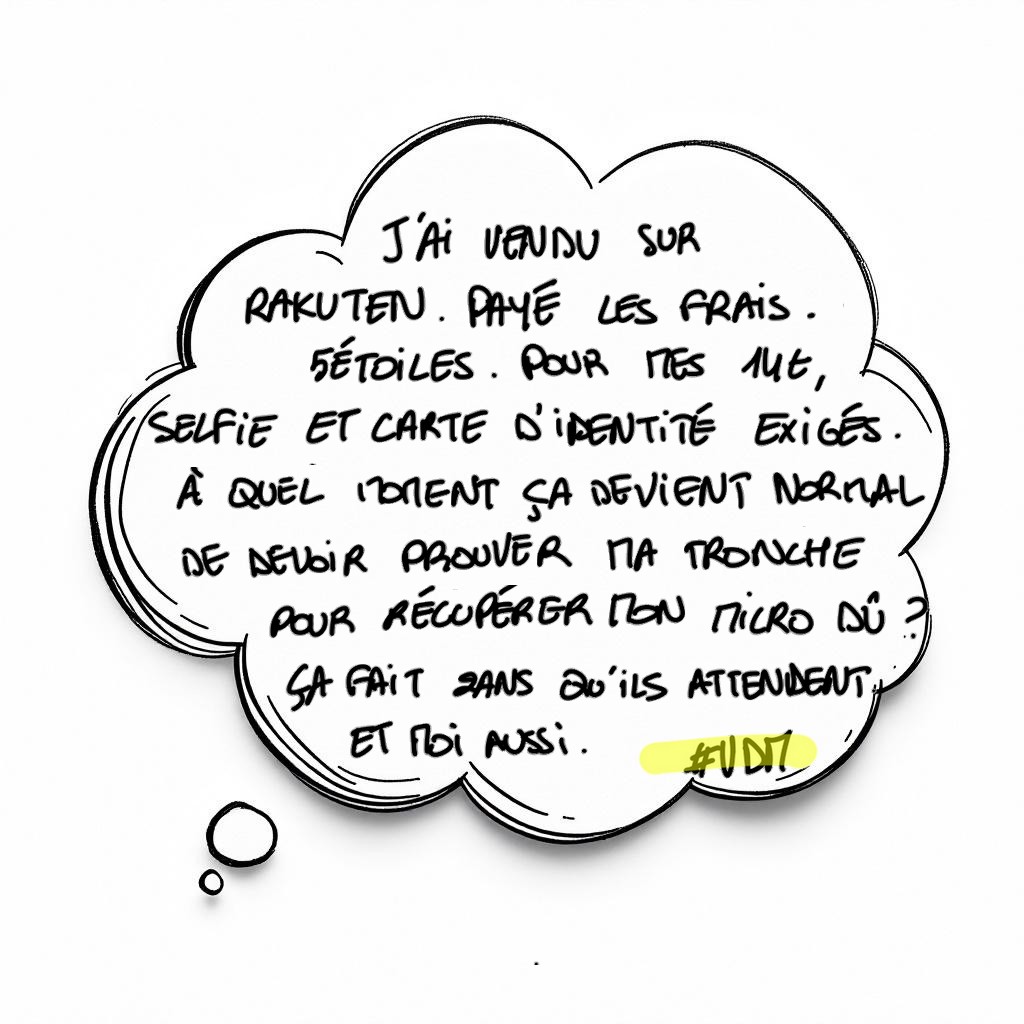 J'Ai VENDU SUR
RAKUTEN. PAYÉ LES FRAiS.
5ÉTOiLES. POUR MES 14€,
SELFiE ET CARTE D'iDENTiTÉ EXiGÉS.
À QUEL MOMENT ÇA DEViENT NORMAL
DE DEVOiR PROUVER MA TRONCHE
POUR RÉCUPÉRER MON MiCRO DÛ ?
ÇA FAiT 2ANS QU'iLS ATTENDENT.
ET MOi AUSSi.
#VDM